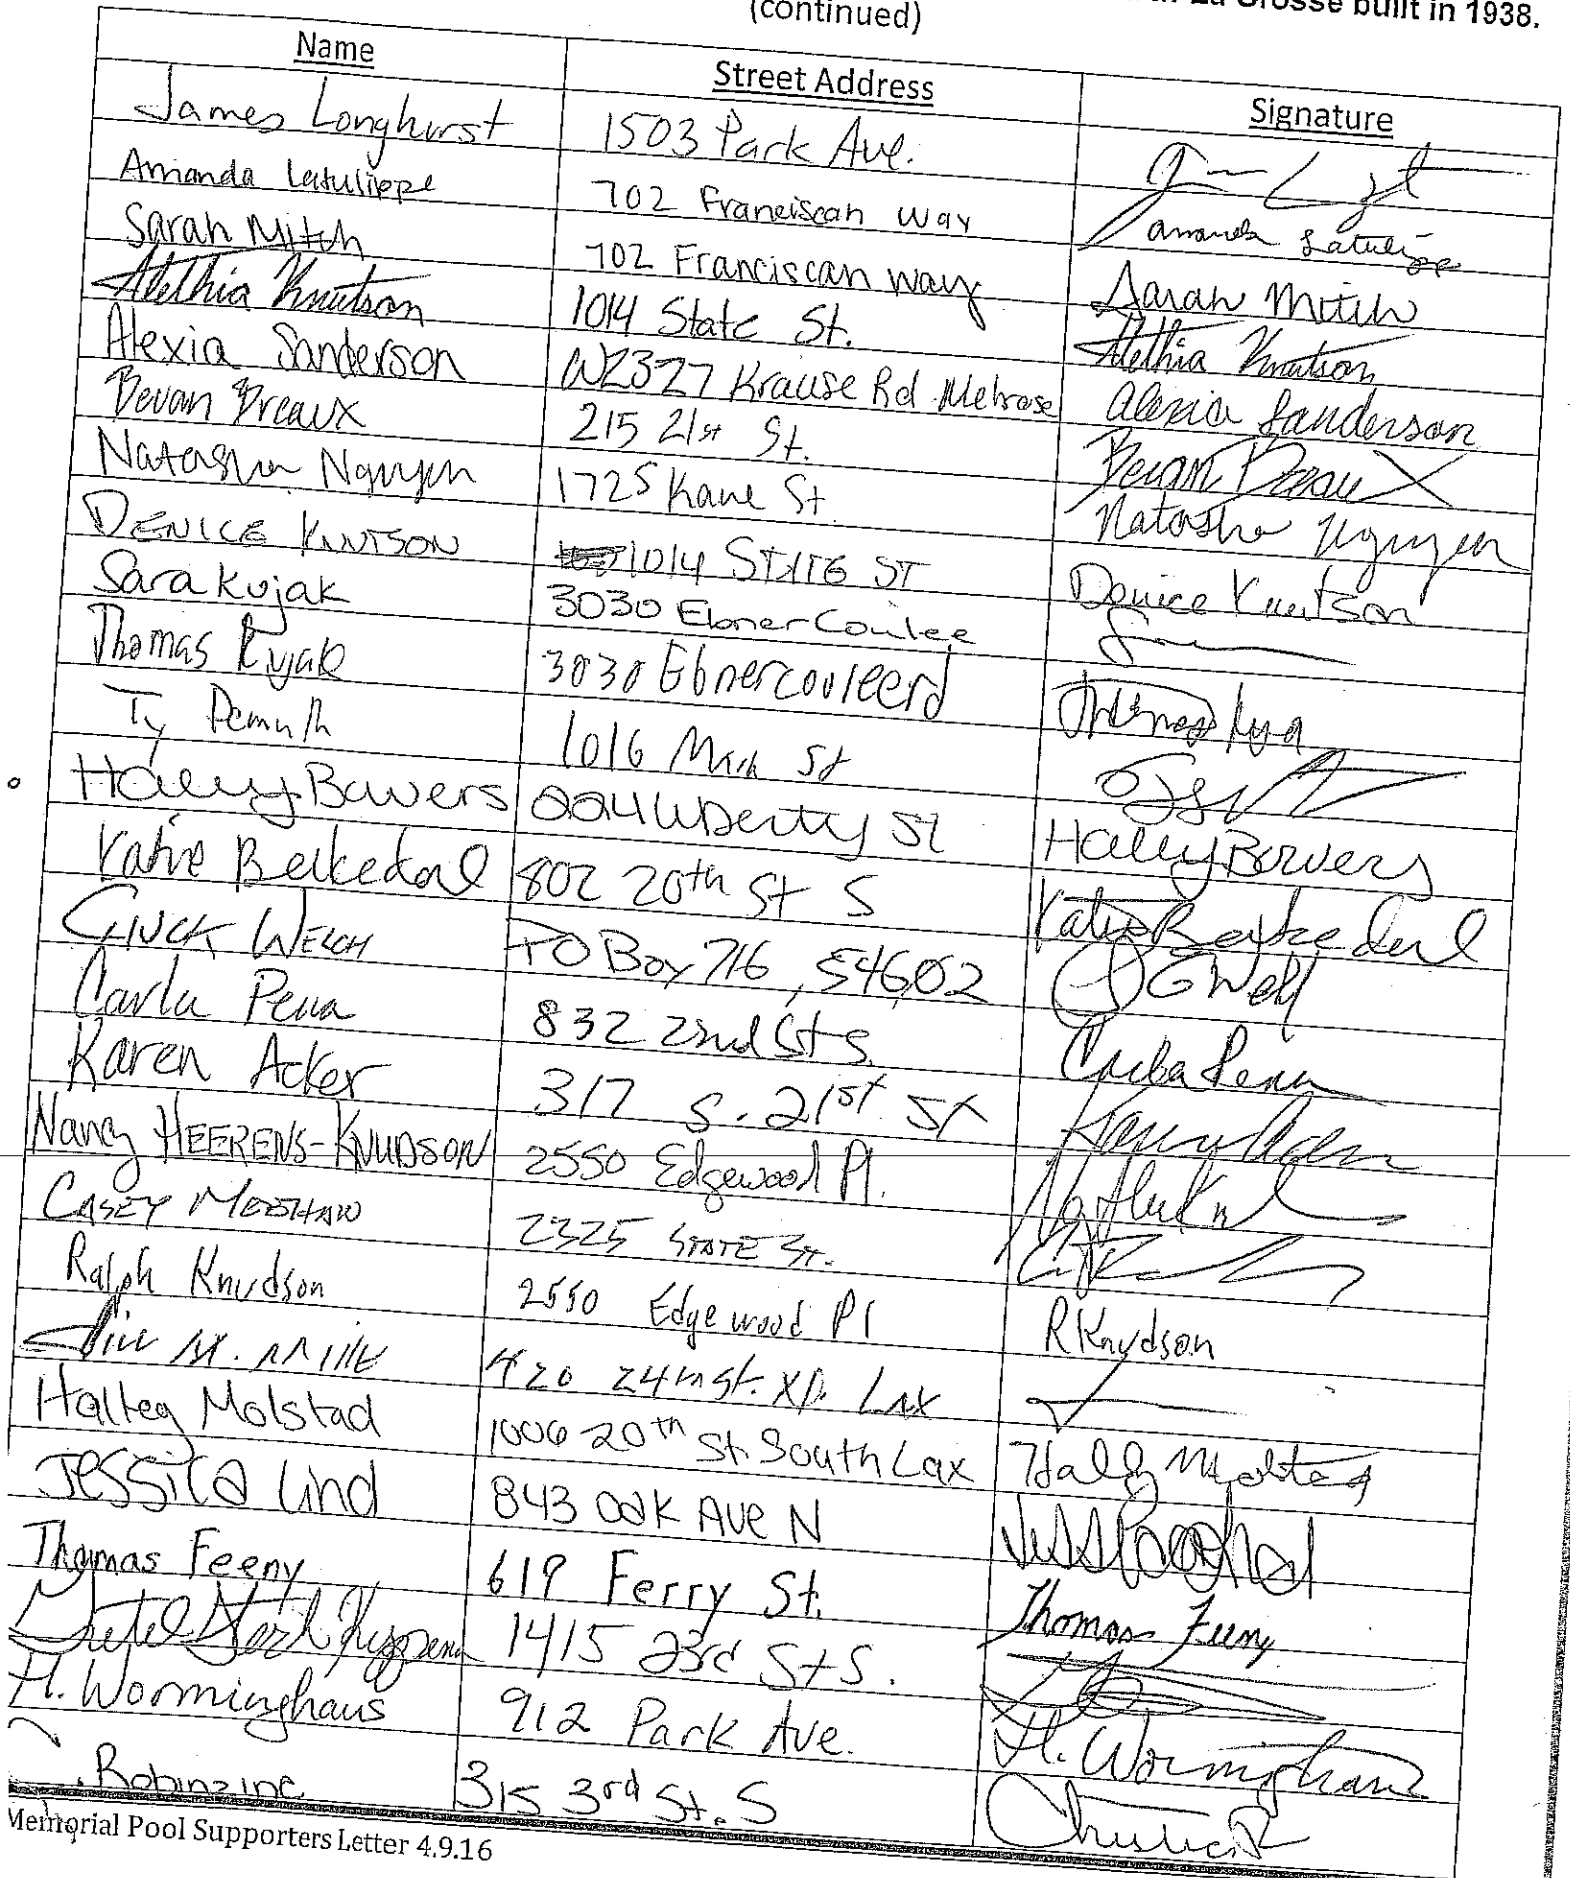 La Crosse built in 1938.
(continued)
Name Street Address Signature
James Longhurst 1503 Park Ave.
Amanda Latulippe 702 Franciscan Way Amanda Latulippe
Sarah Mitch 702 Franciscan Way Sarah Mitch
Alethia Knutson 1014 State St. Alethia Knutson
Alexia Sanderson W2327 Krause Rd Melrose Alexia Sanderson
Bevan Breaux 215 21st St. Bevan Breaux
Natasha Nguyen 1725 Kane St Natasha Nguyen
DENICE KNUTSON 1014 STATE ST Denice Knutson
Sara Kujak 3030 Ebner Coulee
Thomas Kujak 3030 Ebnercouleerd Thomas
Ty Demuth 1016 St
Hailey Bowers 224 Liberty St Hailey Bowers
Katie Berkedal 802 20th St S Katie Berkedal
CHUCK WELCH PO Box 716, 54602
Carla Pena 832 22nd St S Carla Pena
Karen Acker 317 S. 21st St Karen Acker
Nancy HEERENS-KNUDSON 2550 Edgewood Pl.
CASEY MEEHAN 2325 STATE ST.
Ralph Knudson 2550 Edgewood Pl R Knudson
420 24th St. Lax
Halley Molstad 1006 20th St. South Lax Halley Molstad
Jessica Lind 843 Oak Ave N
Thomas Feeny 619 Ferry St. Thomas Feeny
1415 23rd St S.
H. Worminghaus 912 Park Ave. H. Worminghaus
Robinzine 315 3rd St. S
Memorial Pool Supporters Letter 4.9.16